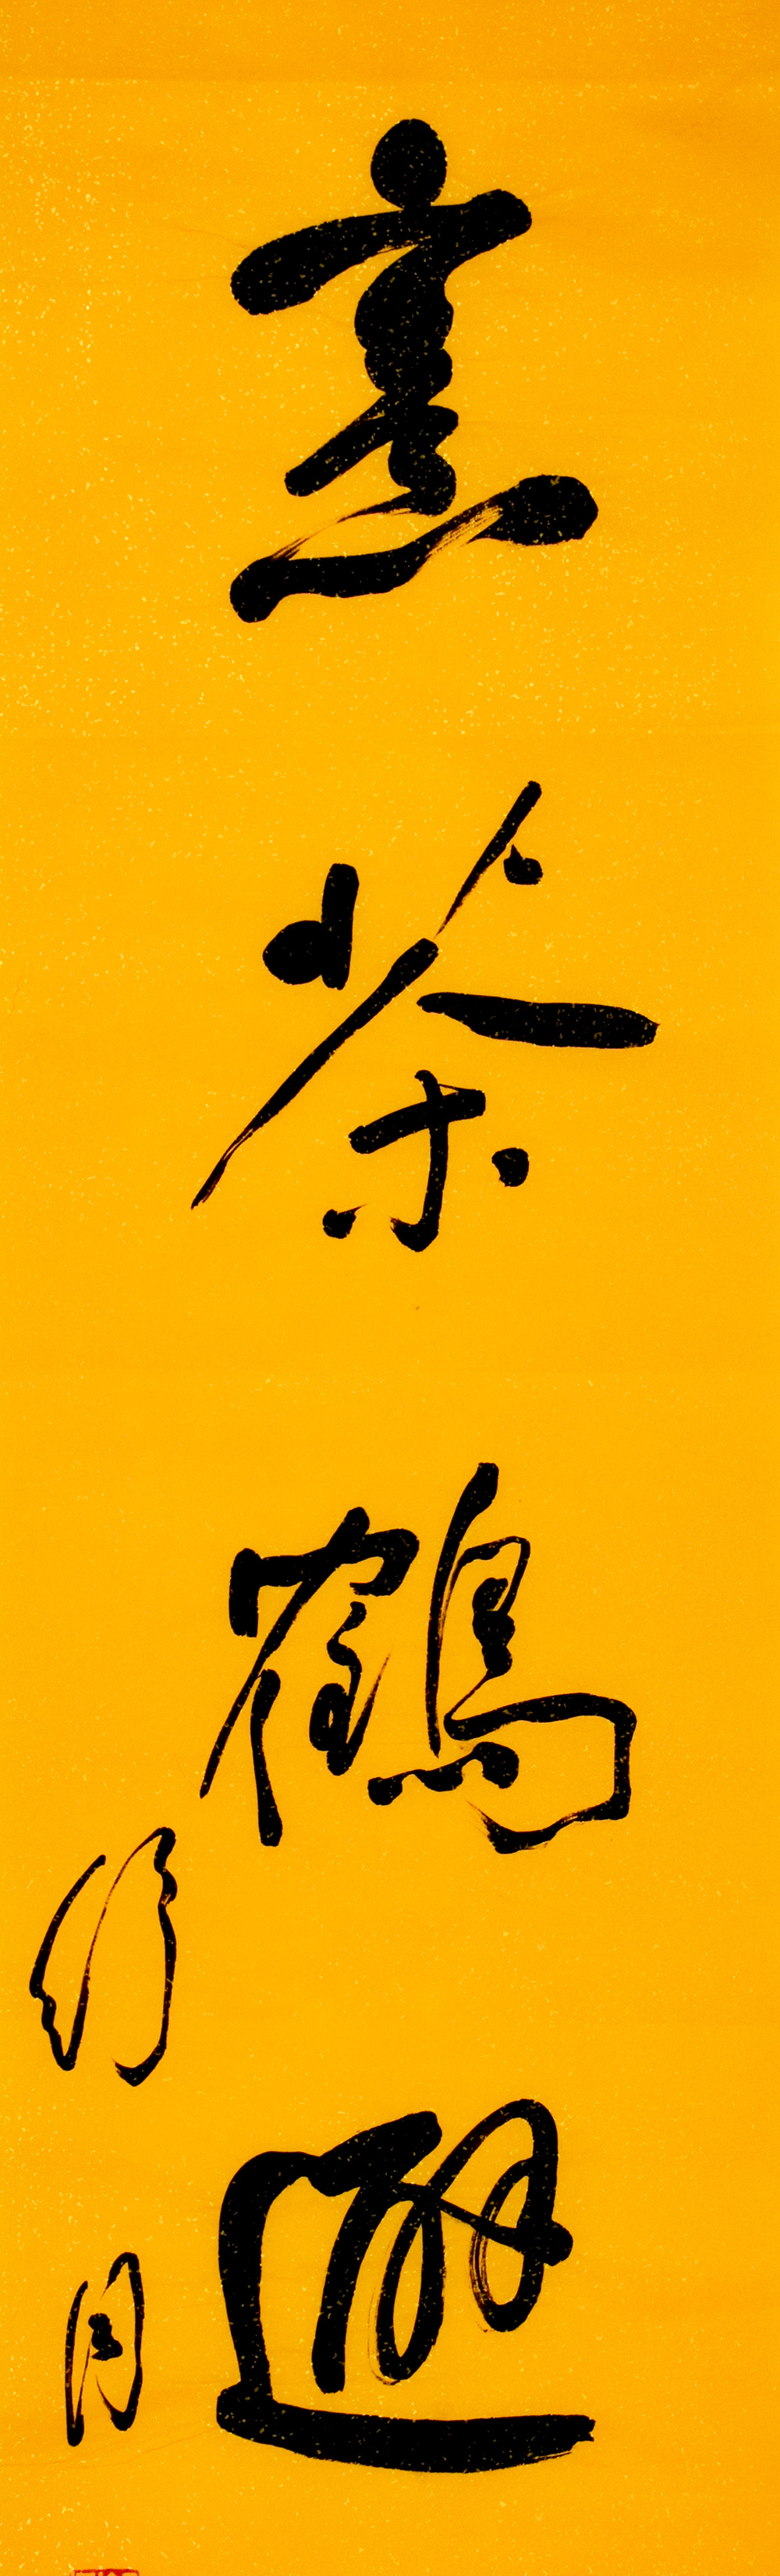 烹茶鶴避
行月